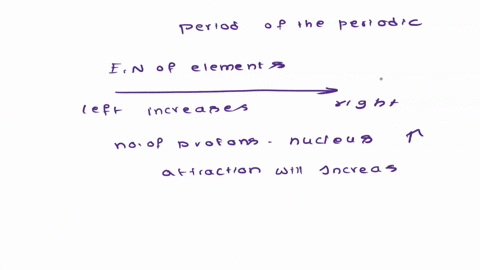 period of the periodic
E.N of elements
left increases right
no.of protons. nucleus ↑
attraction will increas